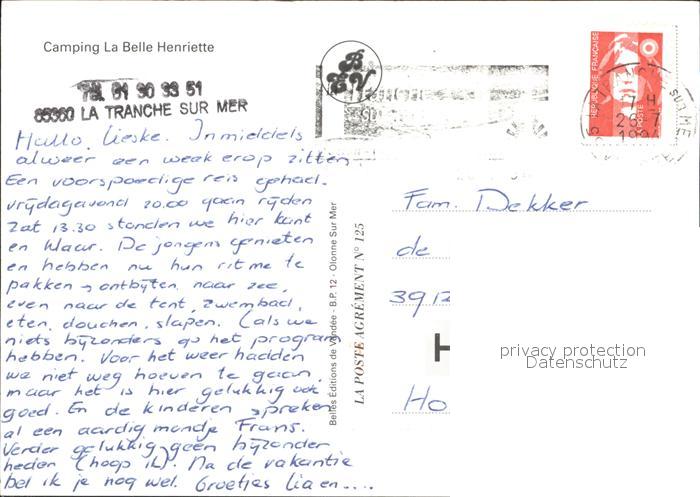 Camping La Belle Henriette
Tél. 51 30 33 51
85360 LA TRANCHE SUR MER
Hallo, Lieske. Inmiddels
alweer een week erop zitten
Een voorspoedige reis gehad.
vrijdagavond 20.00 gaan rijden
Zat 13.30 stonden we hier kant
en klaar. De jongens genieten
en hebben nu hun ritme te
pakken, ontbijten, naar zee,
even naar de tent, zwembad,
eten, douchen, slapen. (als we
niets bijzonders op het program
hebben. Voor het weer hadden
we niet weg hoeven te gaan,
maar het is hier gelukkig ook
goed. En de kinderen spreken
al een aardig mondje Frans.
Verder gelukkig geen bijzonder
heden (hoop ik). Na de vakantie
bel ik je nog wel. Groetjes Lia en....
Belles Editions de Vendée - B.P. 12 - Olonne Sur Mer
LA POSTE AGRÉMENT N° 125
BEV
REPUBLIQUE FRANÇAISE
SUR MER
17 H
26-7
1994
Fam. Dekker
de
3912
H
Ho
privacy protection
Datenschutz